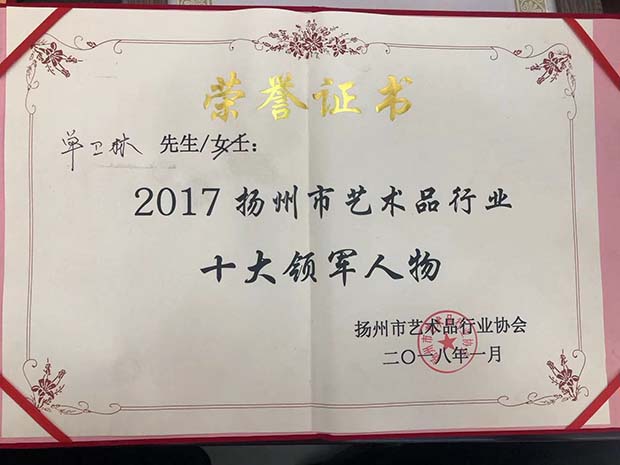 荣誉证书
单卫林 先生/女士：
2017扬州市艺术品行业
十大领军人物
扬州市艺术品行业协会
二〇一八年一月